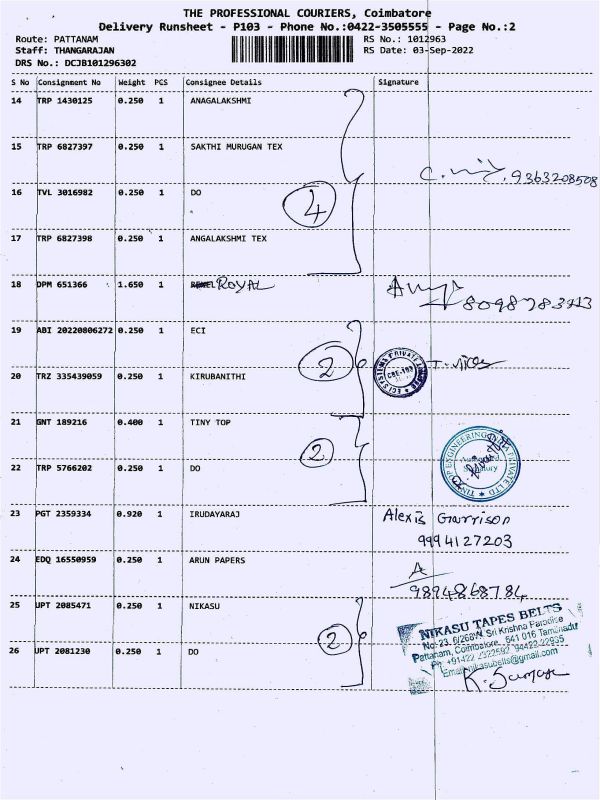 THE PROFESSIONAL COURIERS, Coimbatore
Delivery Runsheet - P103 - Phone No.:0422-3505555 - Page No.:2
Route: PATTANAM
RS No.: 1012963
Staff: THANGARAJAN
RS Date: 03-Sep-2022
DRS No.: DCJB101296302
S No Consignment No Weight PCS Consignee Details Signature
14 TRP 1430125 0.250 1 ANAGALAKSHMI
15 TRP 6827397 0.250 1 SAKTHI MURUGAN TEX
9363208508
16 TVL 3016982 0.250 1 DO
4
17 TRP 6827398 0.250 1 ANGALAKSHMI TEX
18 DPM 651366 1.650 1 ROYAL
8098783713
19 ABI 20220806272 0.250 1 ECI
2
20 TRZ 335439059 0.250 1 KIRUBANITHI
21 GNT 189216 0.400 1 TINY TOP
2
22 TRP 5766202 0.250 1 DO
23 PGT 2359334 0.920 1 IRUDAYARAJ Alexis Garrison
9994127203
24 EDQ 16550959 0.250 1 ARUN PAPERS A
9894868784
25 UPT 2085471 0.250 1 NIKASU
NIKASU TAPES BELTS
No: 23, 6/268W, Sri Krishna Paradise
Pattanam, Coimbatore, 641 016 Tamilnadu
2
26 UPT 2081230 0.250 1 DO